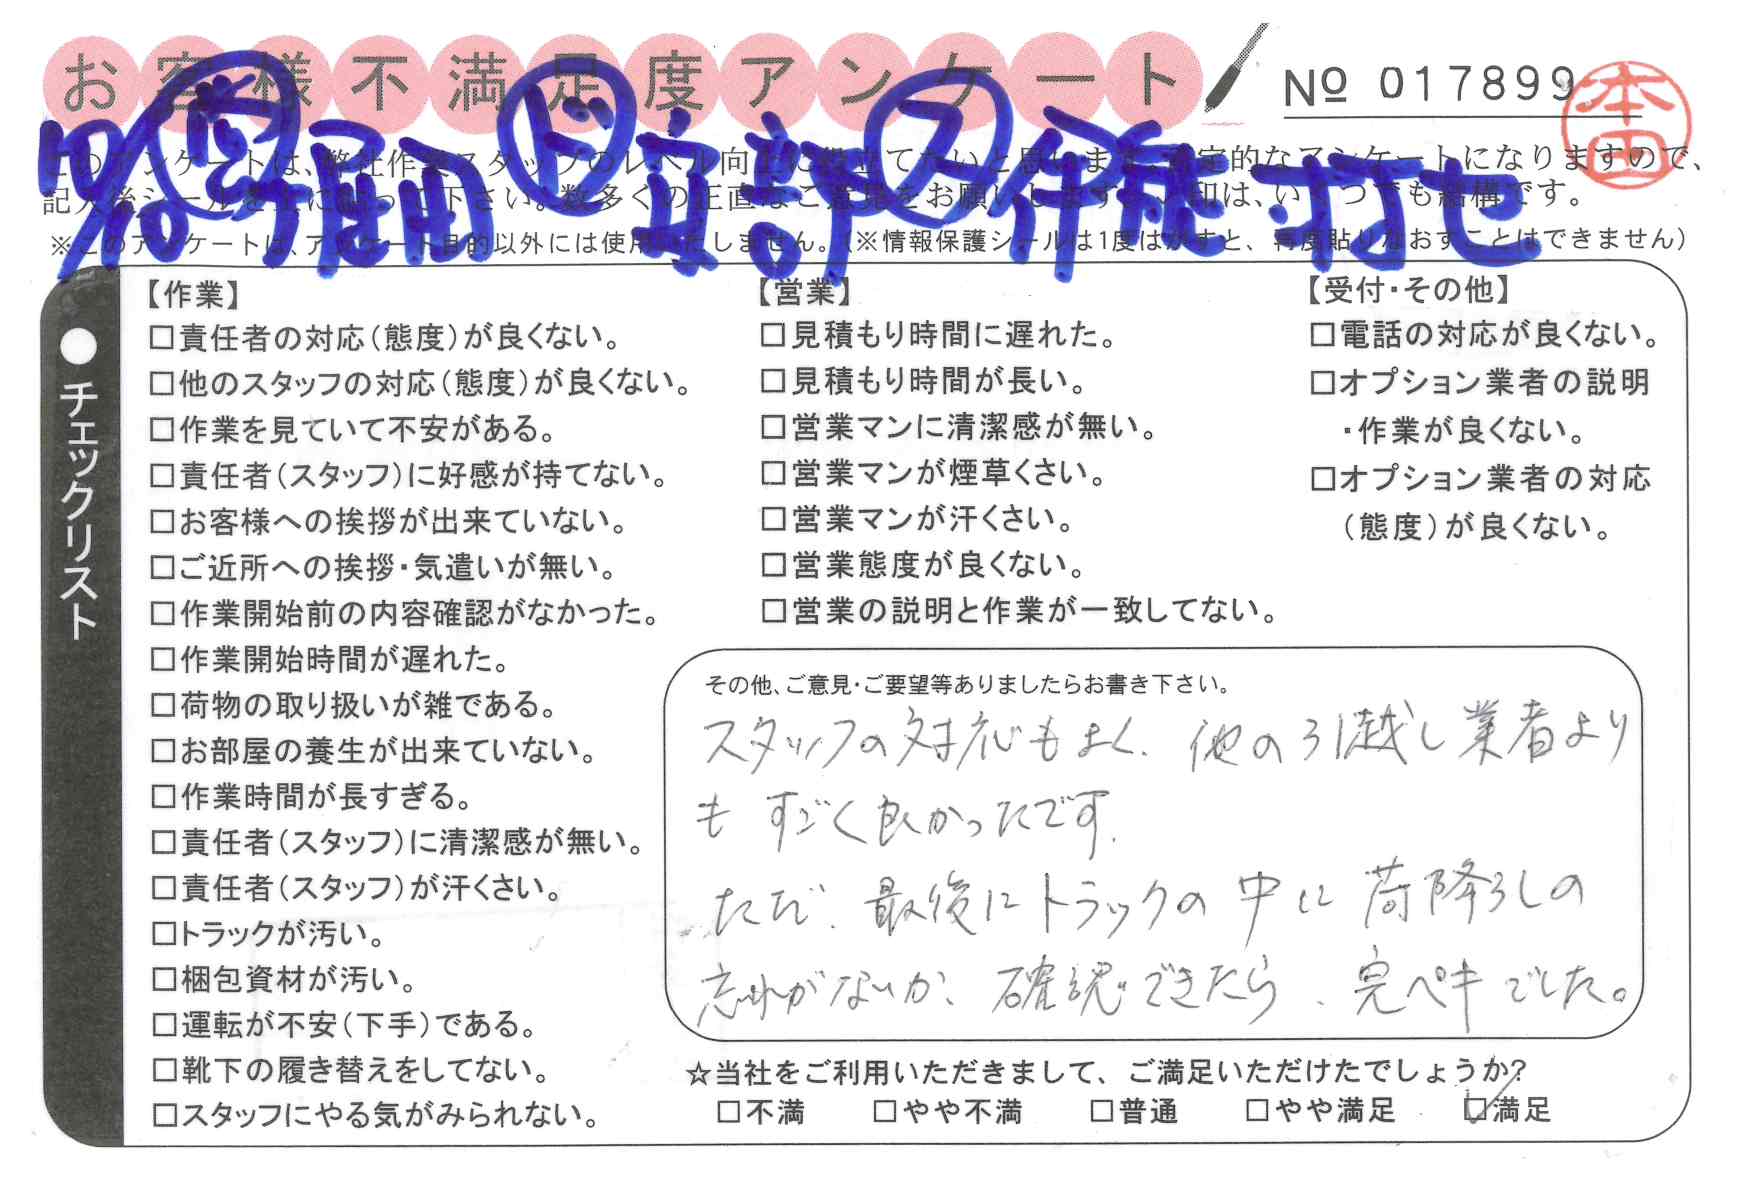 お客様不満足度アンケート
№ 017899
本田
このアンケートは、弊社作業スタッフのレベル向上に役立てたいと思います。否定的なアンケートになりますので、
記入後シールを上にはって下さい。数多くの正直なご意見をお願いします。レ印は、いくつでも結構です。
※このアンケートは、アンケート目的以外には使用いたしません。(※情報保護シールは1度はがすと、再度貼りなおすことはできません)
●チェックリスト
【作業】
□責任者の対応(態度)が良くない。
□他のスタッフの対応(態度)が良くない。
□作業を見ていて不安がある。
□責任者(スタッフ)に好感が持てない。
□お客様への挨拶が出来ていない。
□ご近所への挨拶・気遣いが無い。
□作業開始前の内容確認がなかった。
□作業開始時間が遅れた。
□荷物の取り扱いが雑である。
□お部屋の養生が出来ていない。
□作業時間が長すぎる。
□責任者(スタッフ)に清潔感が無い。
□責任者(スタッフ)が汗くさい。
□トラックが汚い。
□梱包資材が汚い。
□運転が不安(下手)である。
□靴下の履き替えをしてない。
□スタッフにやる気がみられない。
【営業】
□見積もり時間に遅れた。
□見積もり時間が長い。
□営業マンに清潔感が無い。
□営業マンが煙草くさい。
□営業マンが汗くさい。
□営業態度が良くない。
□営業の説明と作業が一致してない。
【受付・その他】
□電話の対応が良くない。
□オプション業者の説明
・作業が良くない。
□オプション業者の対応
(態度)が良くない。
その他、ご意見・ご要望等ありましたらお書き下さい。
スタッフの対応もよく、他の引越し業者より
も すごく良かったです。
ただ、最後にトラックの中に荷降ろしの
忘れがないか、確認できたら、完ペキでした。
☆当社をご利用いただきまして、ご満足いただけたでしょうか?
□不満 □やや不満 □普通 □やや満足 ☑満足